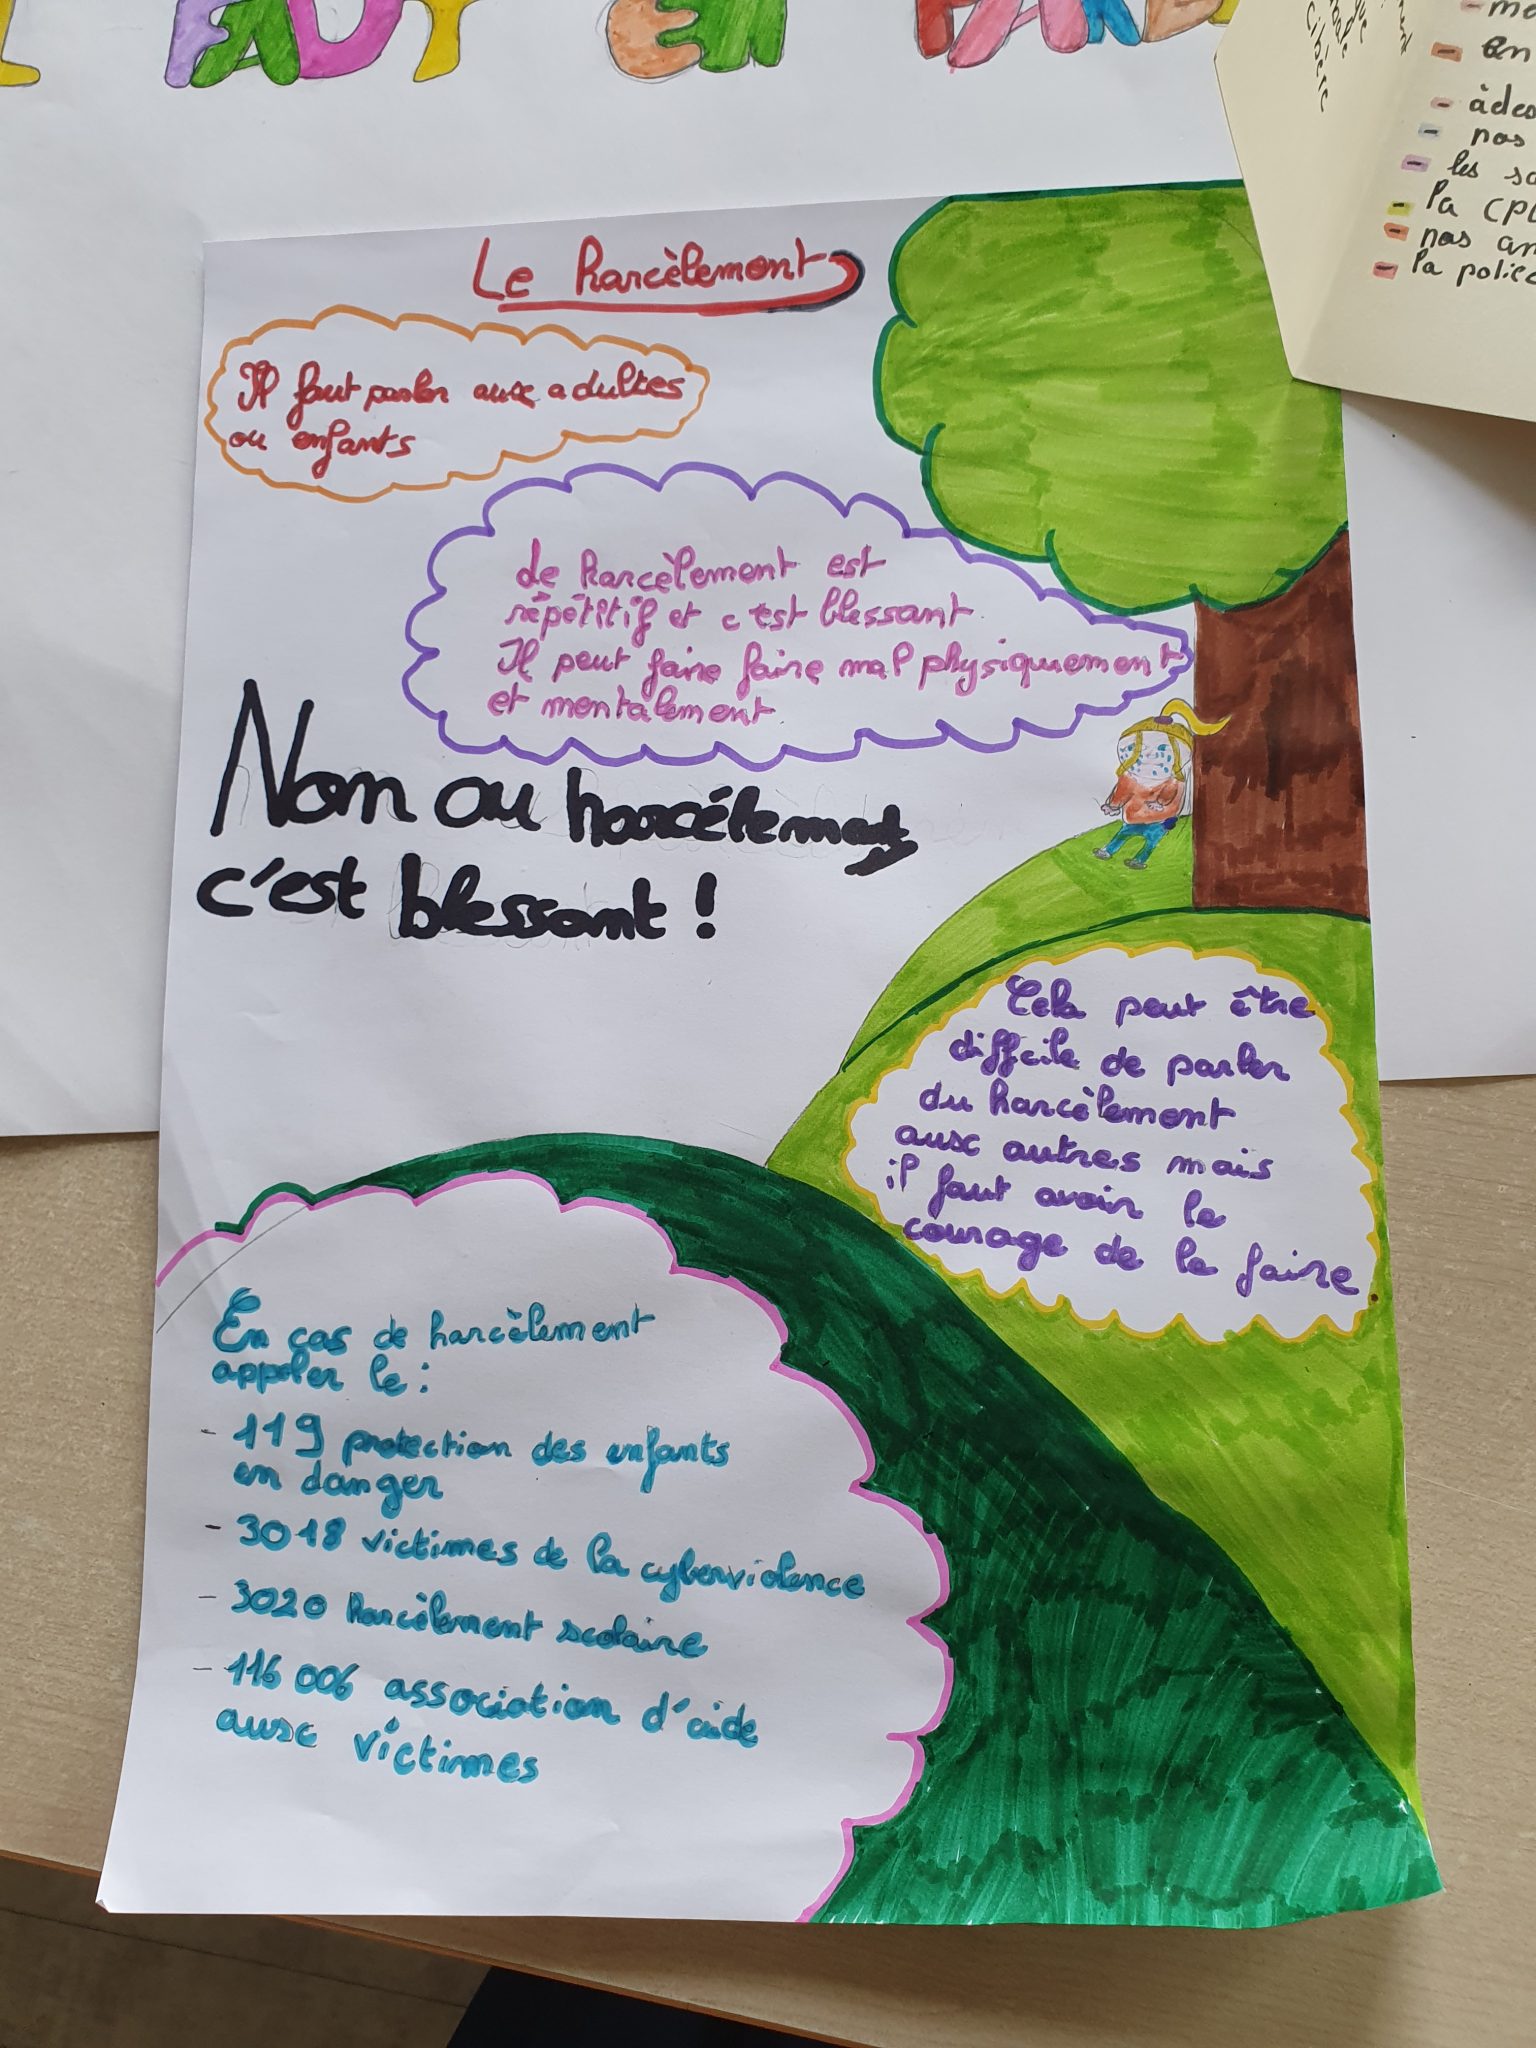 FAUT EN PARL
Le harcèlement
Il faut parler aux adultes
ou enfants
de harcèlement est
répétitif et c'est blessant.
Il peut faire faire mal physiquement
et mentalement.
Non au harcélement
c'est blessant !
Cela peut être
diffcile de parler
du harcèlement
aux autres mais
il faut avoir le
courage de le faire
En cas de harcèlement
appeler le :
- 119 protection des enfants
en danger
- 3018 victimes de la cyberviolence
- 3020 harcèlement scolaire
- 116 006 association d'aide
aux victimes
cibère
- en
- nos
- les
- la
- nos
- la police